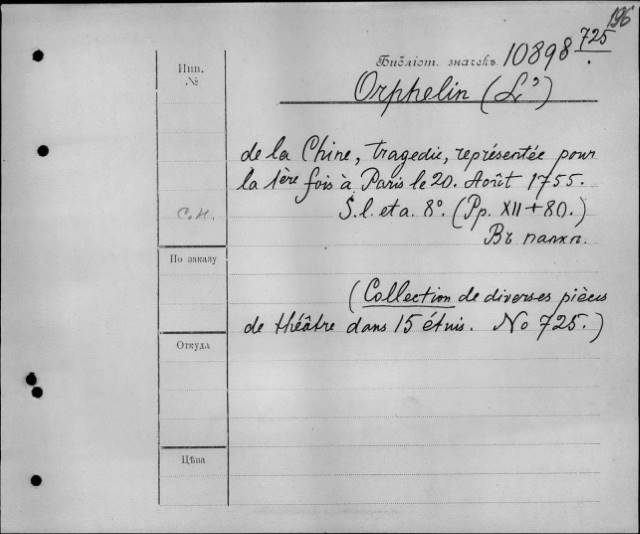 196
Инв.
№
Библіот. значекъ 10898 725
Orphelin (L')
de la Chine, tragedie, représentée pour
la 1ère fois à Paris le 20. Août 1755.
S. l. et a. 8°. (Pp. XII + 80.)
С.н.
Въ папкѣ.
По заказу
(Collection de diverses pièces
de théâtre dans 15 étuis. No 725.)
Откуда
Цѣна